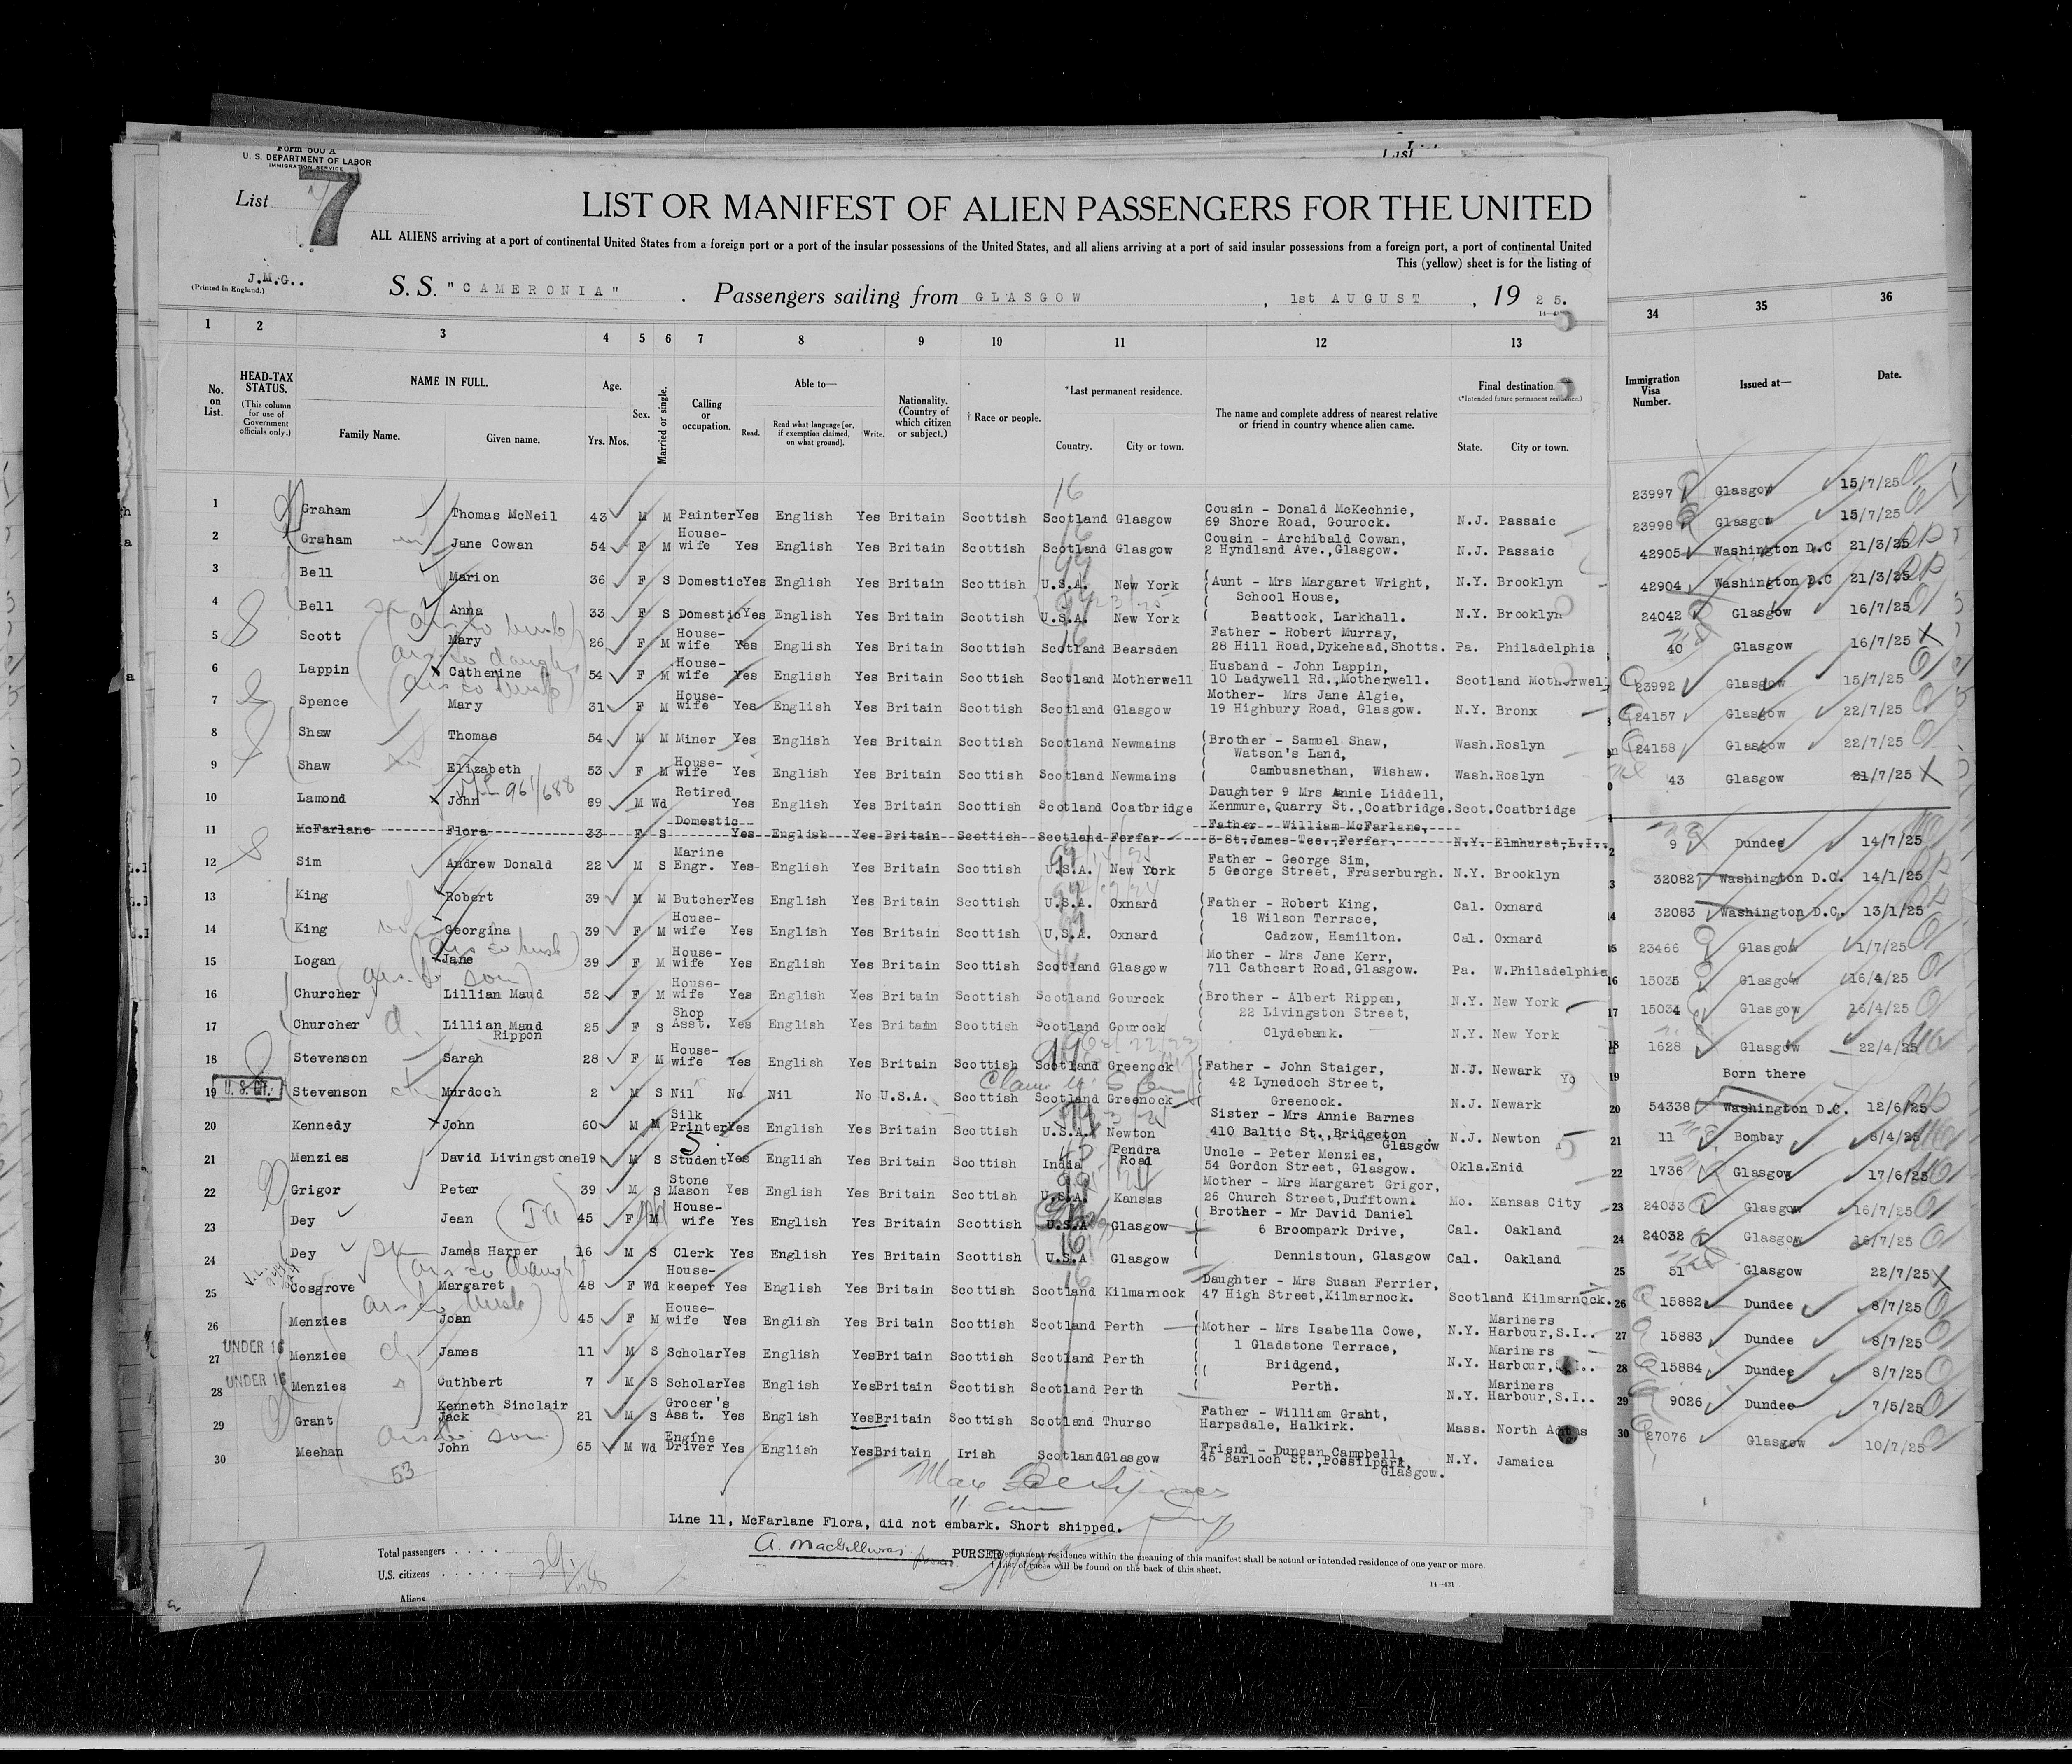 Form 600 A
U. S. DEPARTMENT OF LABOR
IMMIGRATION SERVICE
List 7
LIST OR MANIFEST OF ALIEN PASSENGERS FOR THE UNITED
ALL ALIENS arriving at a port of continental United States from a foreign port or a port of the insular possessions of the United States, and all aliens arriving at a port of said insular possessions from a foreign port, a port of continental United
This (yellow) sheet is for the listing of
J.M.G..
(Printed in England.)
S. S. "CAMERONIA". Passengers sailing from GLASGOW, 1st AUGUST, 19 25.
1 2 3 4 5 6 7 8 9 10 11 12 13 34 35 36
No. on List.
HEAD-TAX STATUS. (This column for use of Government officials only.)
NAME IN FULL.
Family Name. Given name.
Age. Yrs. Mos.
Sex.
Married or single.
Calling or occupation.
Able to—
Read. Read what language [or, if exemption claimed, on what ground]. Write.
Nationality. (Country of which citizen or subject.)
† Race or people.
*Last permanent residence.
Country. City or town.
The name and complete address of nearest relative or friend in country whence alien came.
Final destination. (*Intended future permanent residence.)
State. City or town.
Immigration Visa Number.
Issued at—
Date.
1 Graham Thomas McNeil 43 M M Painter Yes English Yes Britain Scottish Scotland Glasgow Cousin - Donald McKechnie, 69 Shore Road, Gourock. N.J. Passaic 23997 Glasgow 15/7/25
2 Graham Jane Cowan 54 F M House-wife Yes English Yes Britain Scottish Scotland Glasgow Cousin - Archibald Cowan, 2 Hyndland Ave., Glasgow. N.J. Passaic 23998 Glasgow 15/7/25
3 Bell Marion 36 F S Domestic Yes English Yes Britain Scottish U.S.A. New York Aunt - Mrs Margaret Wright, School House, N.Y. Brooklyn 42905 Washington D.C 21/3/25
4 Bell Anna 33 F S Domestic Yes English Yes Britain Scottish U.S.A. New York Beattock, Larkhall. N.Y. Brooklyn 42904 Washington D.C 21/3/25
5 Scott Mary 26 F M House-wife Yes English Yes Britain Scottish Scotland Bearsden Father - Robert Murray, 28 Hill Road, Dykehead, Shotts. Pa. Philadelphia 24042 Glasgow 16/7/25
6 Lappin Catherine 54 F M House-wife Yes English Yes Britain Scottish Scotland Motherwell Husband - John Lappin, 10 Ladywell Rd., Motherwell. Scotland Motherwell 40 Glasgow 16/7/25
7 Spence Mary 31 F M House-wife Yes English Yes Britain Scottish Scotland Glasgow Mother- Mrs Jane Algie, 19 Highbury Road, Glasgow. N.Y. Bronx 23992 Glasgow 15/7/25
8 Shaw Thomas 54 M M Miner Yes English Yes Britain Scottish Scotland Newmains Brother - Samuel Shaw, Watson's Land, Wash. Roslyn 24157 Glasgow 22/7/25
9 Shaw Elizabeth 53 F M House-wife Yes English Yes Britain Scottish Scotland Newmains Cambusnethan, Wishaw. Wash. Roslyn 24158 Glasgow 22/7/25
10 Lamond John 69 M Wd Retired Yes English Yes Britain Scottish Scotland Coatbridge Daughter 9 Mrs Annie Liddell, Kenmure, Quarry St., Coatbridge. Scot. Coatbridge 43 Glasgow 21/7/25
11 McFarlane Flora 33 F S Domestic Yes English Britain Scottish Scotland Forfar Father - William McFarlane, 3 St. James Tce., Forfar. N.Y. Elmhurst, L.I.
12 Sim Andrew Donald 22 M S Marine Engr. Yes English Yes Britain Scottish U.S.A. New York Father - George Sim, 5 George Street, Fraserburgh. N.Y. Brooklyn 9 Dundee 14/7/25
13 King Robert 39 M M Butcher Yes English Yes Britain Scottish U.S.A. Oxnard Father - Robert King, 18 Wilson Terrace, Cal. Oxnard 32082 Washington D.C. 14/1/25
14 King Georgina 39 F M House-wife Yes English Yes Britain Scottish U.S.A. Oxnard Cadzow, Hamilton. Cal. Oxnard 32083 Washington D.C. 13/1/25
15 Logan Jane 39 F M House-wife Yes English Yes Britain Scottish Scotland Glasgow Mother - Mrs Jane Kerr, 711 Cathcart Road, Glasgow. Pa. W.Philadelphia 23466 Glasgow 1/7/25
16 Churcher Lillian Maud 52 F M House-wife Yes English Yes Britain Scottish Scotland Gourock Brother - Albert Rippen, 22 Livingston Street, N.Y. New York 15035 Glasgow 16/4/25
17 Churcher Lillian Maud Rippon 25 F S Shop Asst. Yes English Yes Britain Scottish Scotland Gourock Clydebank. N.Y. New York 15034 Glasgow 16/4/25
18 Stevenson Sarah 28 F M House-wife Yes English Yes Britain Scottish Scotland Greenock Father - John Staiger, 42 Lynedoch Street, N.J. Newark 1628 Glasgow 22/4/25
19 U. S. CIT. Stevenson Murdoch 2 M S Nil No Nil No U.S.A. Scottish Scotland Greenock Greenock. N.J. Newark Born there
20 Kennedy John 60 M M Silk Printer Yes English Yes Britain Scottish U.S.A. Newton Sister - Mrs Annie Barnes 410 Baltic St., Bridgeton Glasgow N.J. Newton 54338 Washington D.C. 12/6/25
21 Menzies David Livingstone 19 M S Student Yes English Yes Britain Scottish India Pendra Road Uncle - Peter Menzies, 54 Gordon Street, Glasgow. Okla. Enid 11 Bombay 8/4/25
22 Grigor Peter 39 M S Stone Mason Yes English Yes Britain Scottish U.S.A. Kansas Mother - Mrs Margaret Grigor, 26 Church Street, Dufftown. Mo. Kansas City 1736 Glasgow 17/6/25
23 Dey Jean 45 F M House-wife Yes English Yes Britain Scottish U.S.A Glasgow Brother - Mr David Daniel 6 Broompark Drive, Cal. Oakland 24033 Glasgow 16/7/25
24 Dey James Harper 16 M S Clerk Yes English Yes Britain Scottish U.S.A Glasgow Dennistoun, Glasgow Cal. Oakland 24032 Glasgow 16/7/25
25 Cosgrove Margaret 48 F Wd House-keeper Yes English Yes Britain Scottish Scotland Kilmarnock Daughter - Mrs Susan Ferrier, 47 High Street, Kilmarnock. Scotland Kilmarnock. 51 Glasgow 22/7/25
26 Menzies Joan 45 F M House-wife Yes English Yes Britain Scottish Scotland Perth Mother - Mrs Isabella Cowe, 1 Gladstone Terrace, N.Y. Mariners Harbour, S.I.. 15882 Dundee 8/7/25
27 UNDER 16 Menzies James 11 M S Scholar Yes English Yes Britain Scottish Scotland Perth Bridgend, N.Y. Mariners Harbour, S.I.. 15883 Dundee 8/7/25
28 UNDER 16 Menzies Cuthbert 7 M S Scholar Yes English Yes Britain Scottish Scotland Perth Perth. N.Y. Mariners Harbour, S.I.. 15884 Dundee 8/7/25
29 Grant Kenneth Sinclair Jack 21 M S Grocer's Asst. Yes English Yes Britain Scottish Scotland Thurso Father - William Grant, Harpsdale, Halkirk. Mass. North 9026 Dundee 7/5/25
30 Meehan John 65 M Wd Engine Driver Yes English Yes Britain Irish Scotland Glasgow Friend - Duncan Campbell, 45 Barloch St., Possilpark, Glasgow. N.Y. Jamaica 27076 Glasgow 10/7/25
53
Line 11, McFarlane Flora, did not embark. Short shipped.
A. MacGillivray PURSER
Total passengers
U.S. citizens
Aliens
Permanent residence within the meaning of this manifest shall be actual or intended residence of one year or more.
† List of races will be found on the back of this sheet.